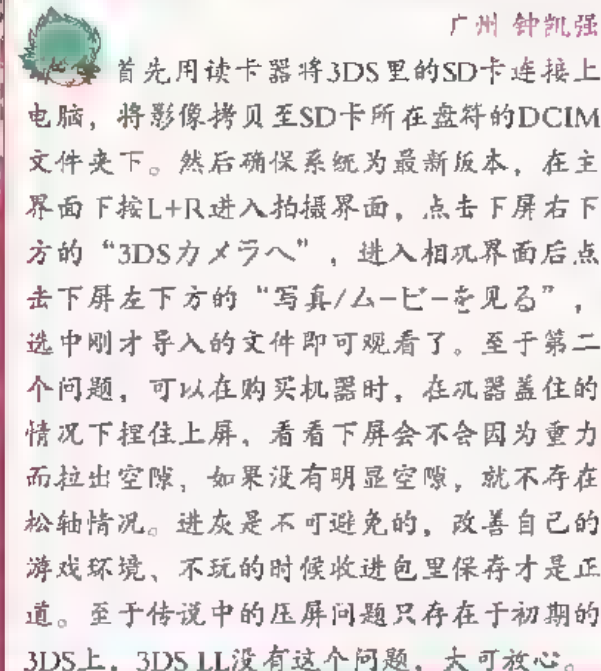 广州 钟凯强
首先用读卡器将3DS里的SD卡连接上
电脑，将影像拷贝至SD卡所在盘符的DCIM
文件夹下。然后确保系统为最新版本，在主
界面下按L+R进入拍摄界面，点击下屏右下
方的“3DSカメラへ”，进入相机界面后点
击下屏左下方的“写真/ムービーを見る”，
选中刚才导入的文件即可观看了。至于第二
个问题，可以在购买机器时，在机器盖住的
情况下捏住上屏，看看下屏会不会因为重力
而拉出空隙，如果没有明显空隙，就不存在
松轴情况。进灰是不可避免的，改善自己的
游戏环境、不玩的时候收进包里保存才是正
道。至于传说中的压屏问题只存在于初期的
3DS上，3DS LL没有这个问题，大可放心。